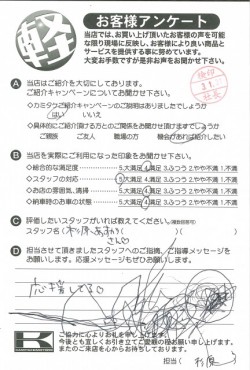 軽
お客様アンケート
当店では、お買い上げ頂いたお客様の声を可能な限り現場に反映し、お客様により良い商品とサービスを提供する事に努めています。
大変お手数ですが是非お声をお聞かせ下さい。
A 当店はご紹介を大切にしております。
ご紹介キャンペーンについてお聞かせ下さい。
◇カミタケご紹介キャンペーンのご説明はありましたでしょうか
はい いいえ
◇具体的にご紹介頂ける方とのご関係をお聞かせ頂けますでしょうか
ご親族 ご友人 職場の方 機会があれば紹介したい
B 当店を実際にご利用になった印象をお聞かせ下さい。
◇総合的な満足度 5.大満足 4.満足 3.ふつう 2.やや不満 1.不満
◇スタッフの対応 5.大満足 4.満足 3.ふつう 2.やや不満 1.不満
◇お店の雰囲気、清掃 5.大満足 4.満足 3.ふつう 2.やや不満 1.不満
◇納車時のお車の状態 5.大満足 4.満足 3.ふつう 2.やや不満 1.不満
C 評価したいスタッフがいれば教えてください。(複数回答可)
スタッフ名( 杉原 )( )
さん
D 担当させて頂きましたスタッフへのご指摘、ご指導メッセージをお願いします。応援メッセージもぜひお願いします。
応援してる
K
ご協力に心よりお礼を申し上げます。
今後とも宜しくお引き立てご愛顧の程お願い申し上げます。
またのご来店を心からお待ちしております。
担当( 杉原 )